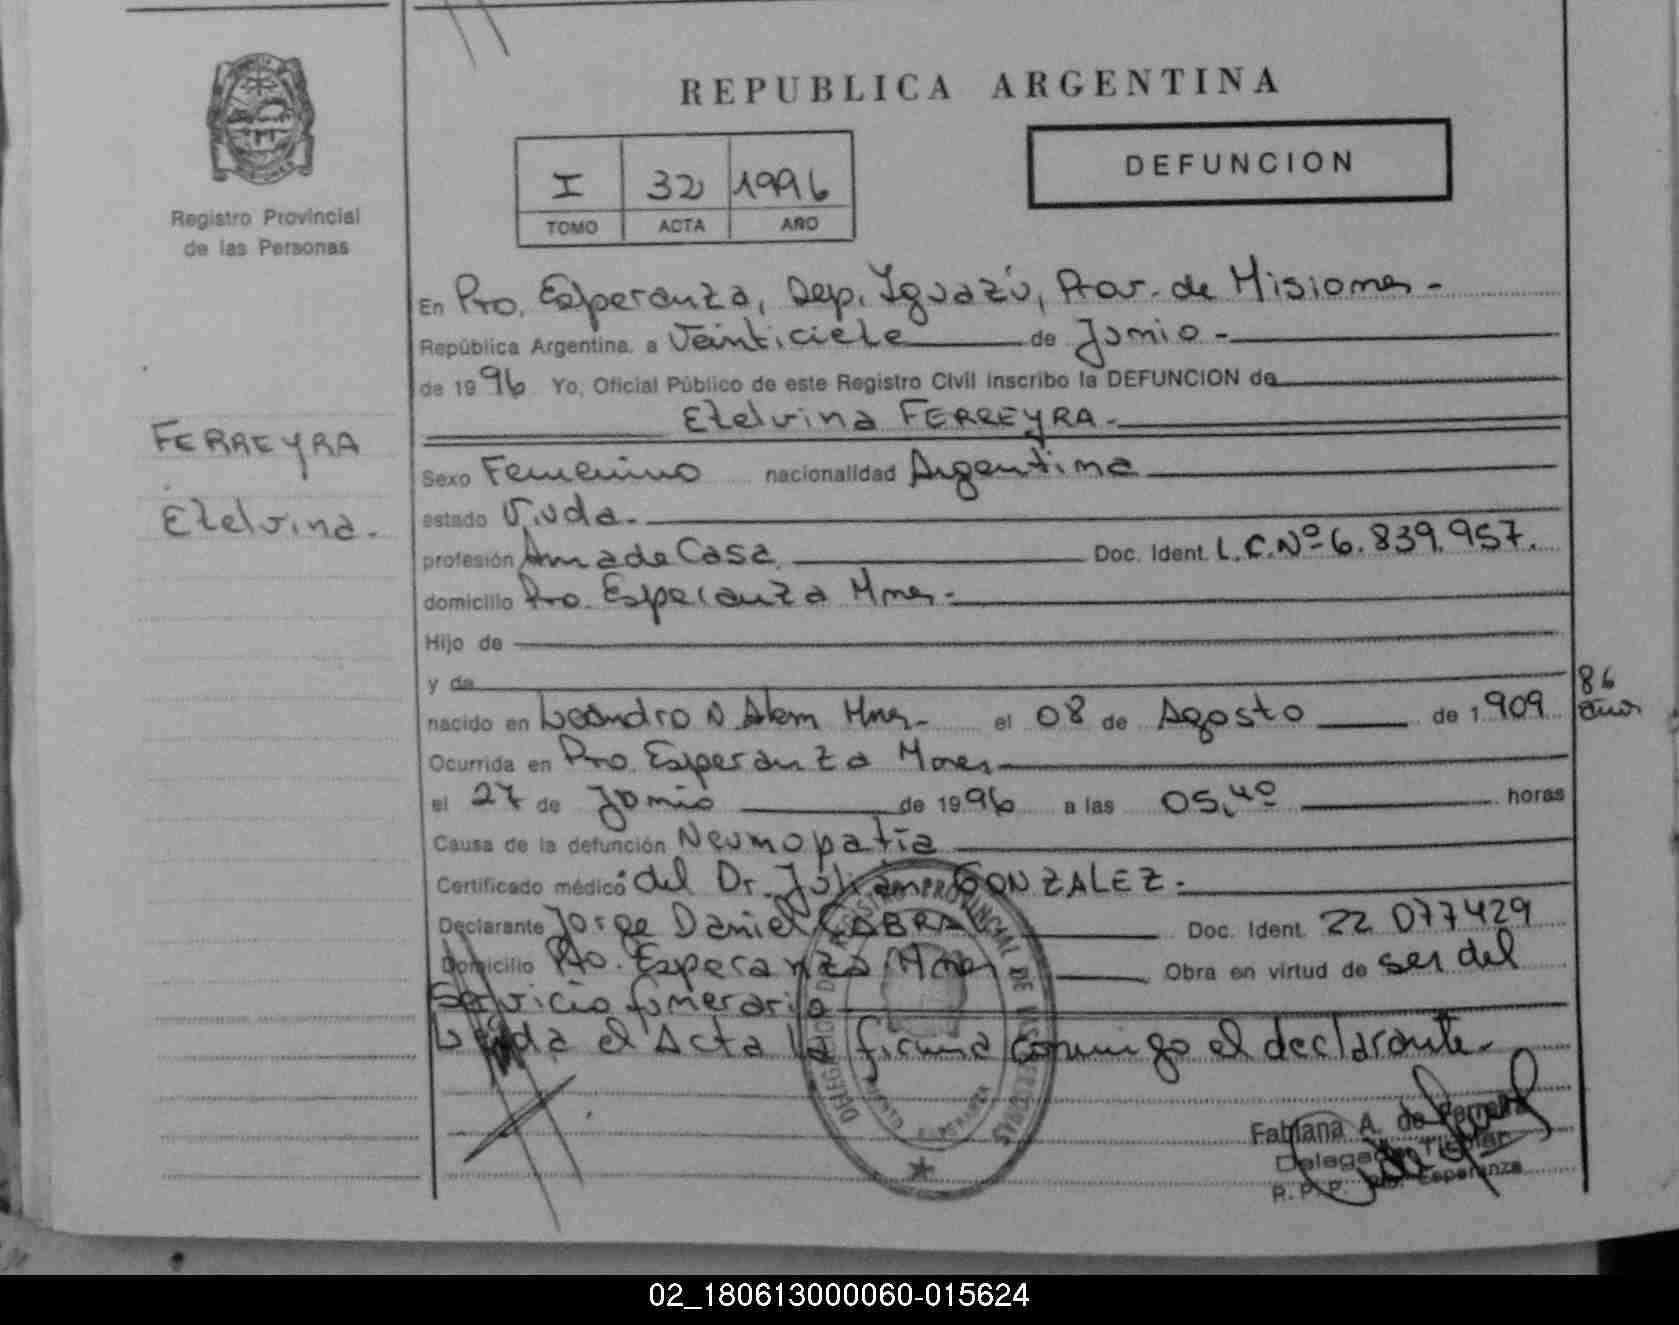 REPUBLICA ARGENTINA
Registro Provincial
de las Personas
I 32 1996
TOMO ACTA AÑO
DEFUNCION
En Pto. Esperanza, Dep. Iguazú, Prov. de Misiones -
República Argentina, a Veinticiete de Junio -
de 1996 Yo, Oficial Público de este Registro Civil inscribo la DEFUNCION de
Etelvina FERREYRA.-
FERREYRA
Etelvina.
Sexo Femenino nacionalidad Argentina
estado Viuda.
profesión Ama de Casa. Doc. Ident. L.C.Nº 6.839.957.
domicilio Pto. Esperanza Mnes.-
Hijo de
y de
nacido en Leandro N Alem Mnes.- el 08 de Agosto de 1.909 86 años
Ocurrida en Pto. Esperanza Mnes
el 27 de Junio de 1996 a las 05,40 horas
Causa de la defunción Neumopatía
Certificado médico del Dr. Julián GONZALEZ.-
Declarante Jorge Daniel CABRAL Doc. Ident. 22 077429
Domicilio Pto. Esperanza Mnes Obra en virtud de ser del
Servicio funerario
Leída el Acta la firma conmigo el declarante.-
DELEGACION DEL REGISTRO PROVINCIAL DE LAS PERSONAS
PUERTO ESPERANZA
Fabiana A. de Ferreira
Delegada Titular
R.P.P. Pto. Esperanza
02_180613000060-015624